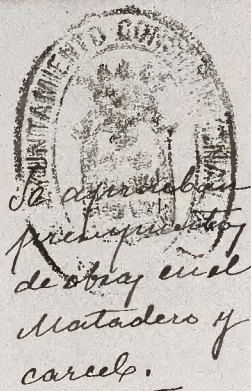 AYUNTAMIENTO CONSTITUCIONAL
Se aprueban
presupuestos
de obras en el
Matadero y
carcel.